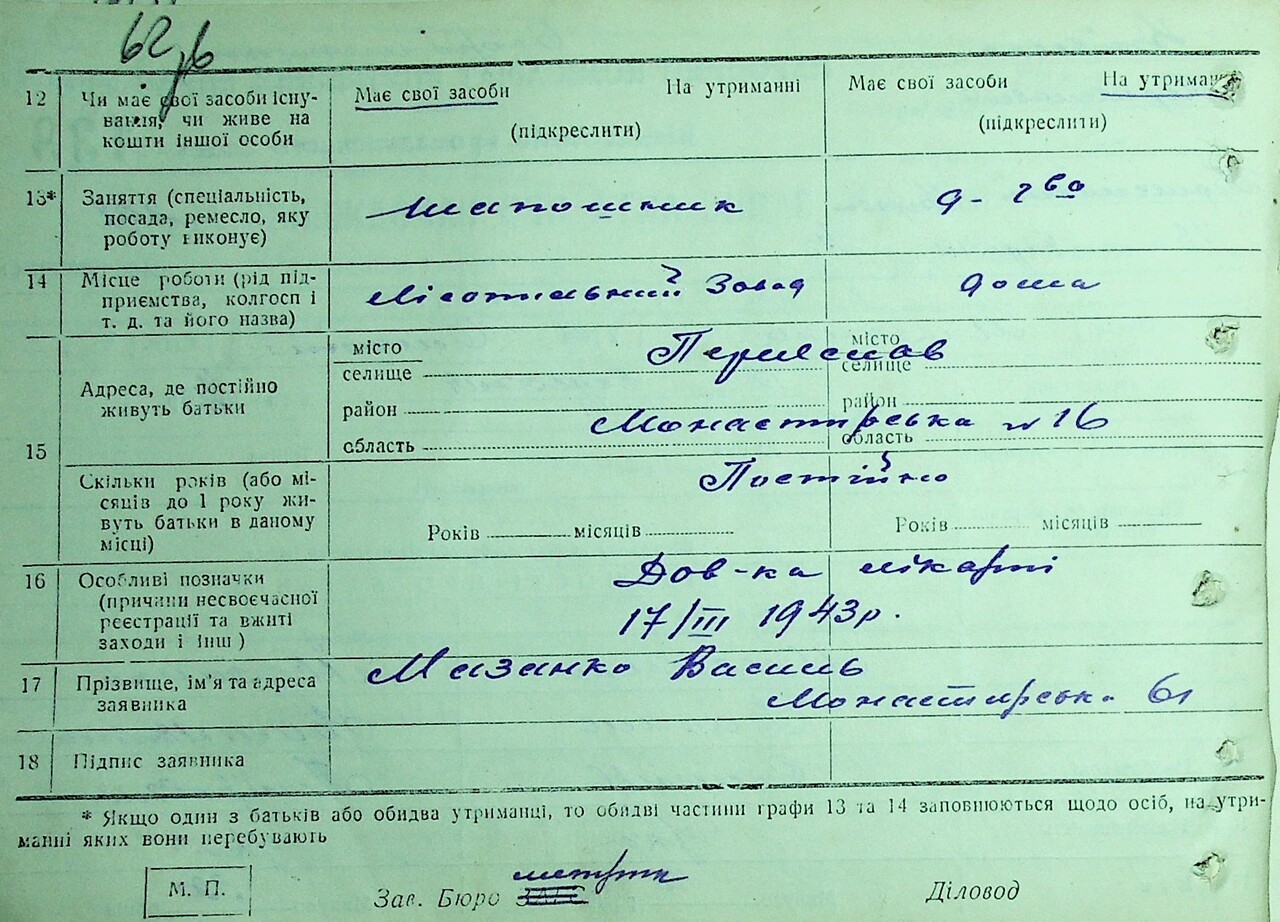 62
12 Чи має свої засоби існу- Має свої засоби На утриманні Має свої засоби На утриманні
вання, чи живе на (підкреслити) (підкреслити)
кошти іншої особи
13* Заняття (спеціальність,
посада, ремесло, яку Шапошник д- г во
роботу виконує)
14 Місце роботи (рід під-
приємства, колгосп і Завод дома
т. д. та його назва)
15 місто місто
селище Переяслав селище
Адреса, де постійно
живуть батьки район район
область Монастирська № 16 область
15 Скільки років (або мі- Постійно
сяців до 1 року жи-
вуть батьки в даному Років місяців Років місяців
місці)
16 Особливі позначки Дов-ка лікарні
(причини несвоєчасної
реєстрації та вжиті 17/III 1943 р.
заходи і інш )
17 Прізвище, ім'я та адреса Мазанко Василь
заявника Монастирська 61
18 Підпис заявника
* Якщо один з батьків або обидва утриманці, то обидві частини графи 13 та 14 заповнюються щодо осіб, на утри-
манні яких вони перебувають
метрик
М. П. Зав. Бюро ЗАГС Діловод